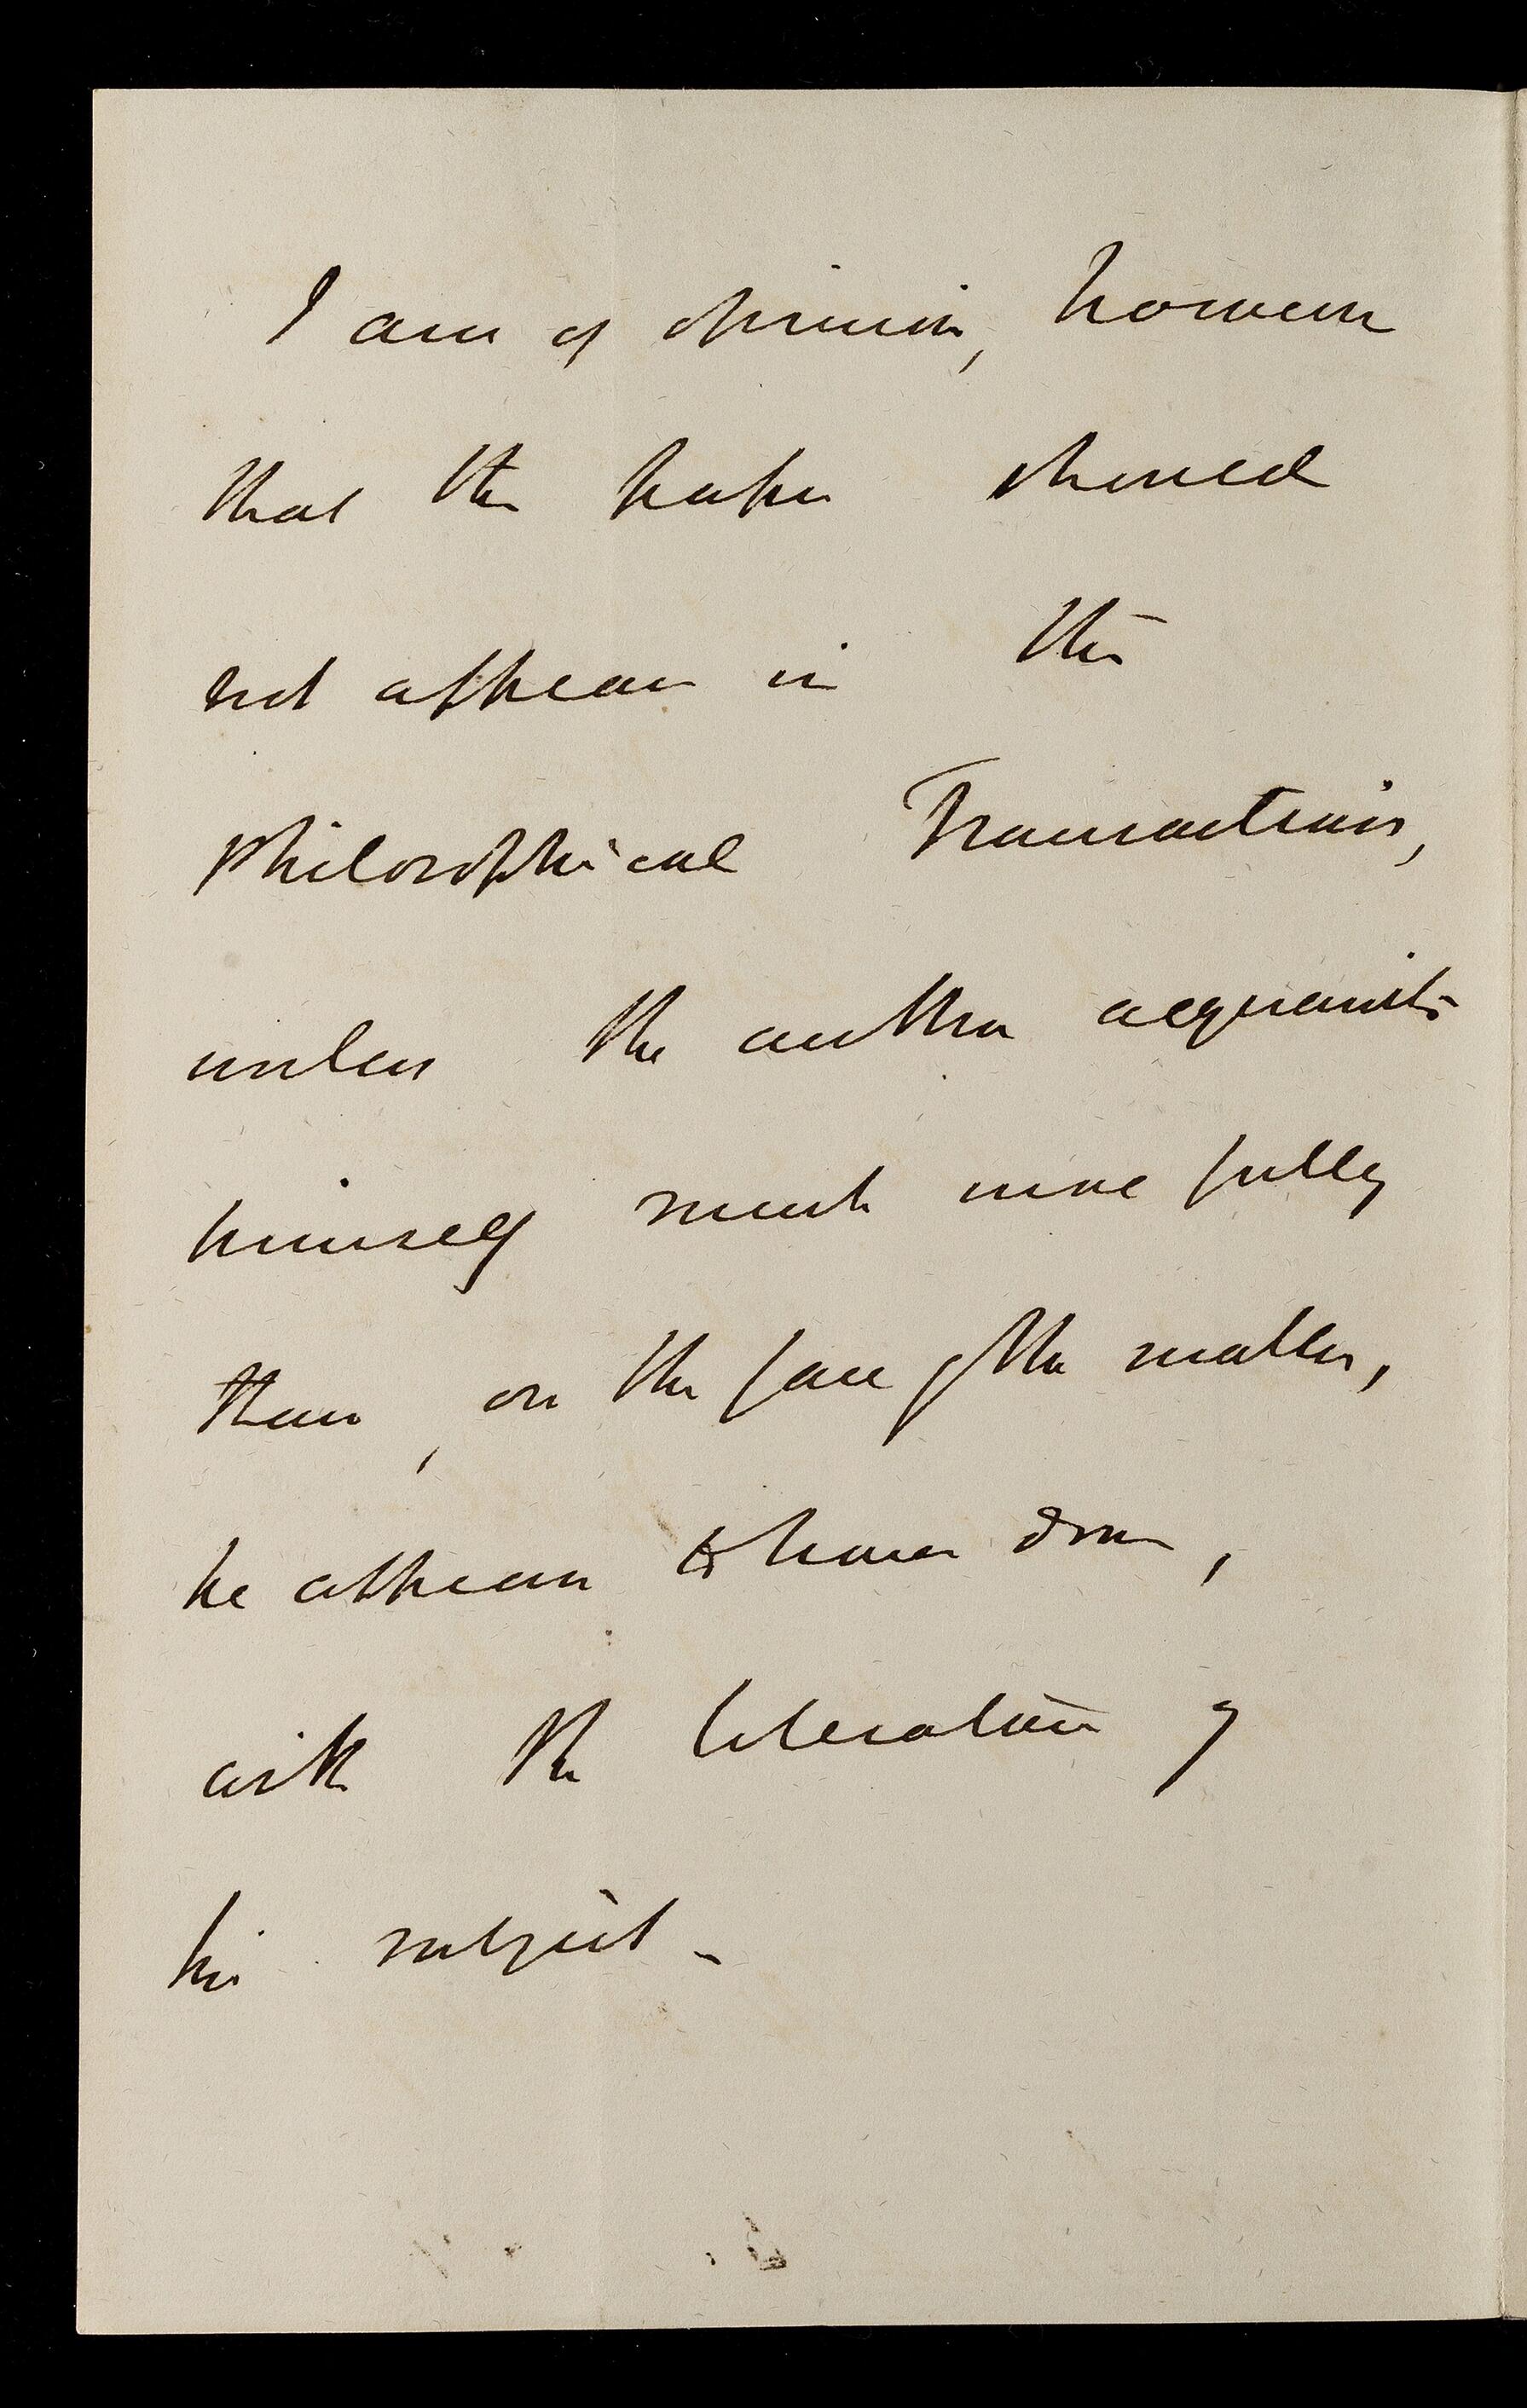 I am of opinion, however
that the paper should
not appear in the
Philosophical Transactions,
unless the author acquaints
himself much more fully
than, on the face of the matter,
he appears to have done,
with the literature of
his subject -